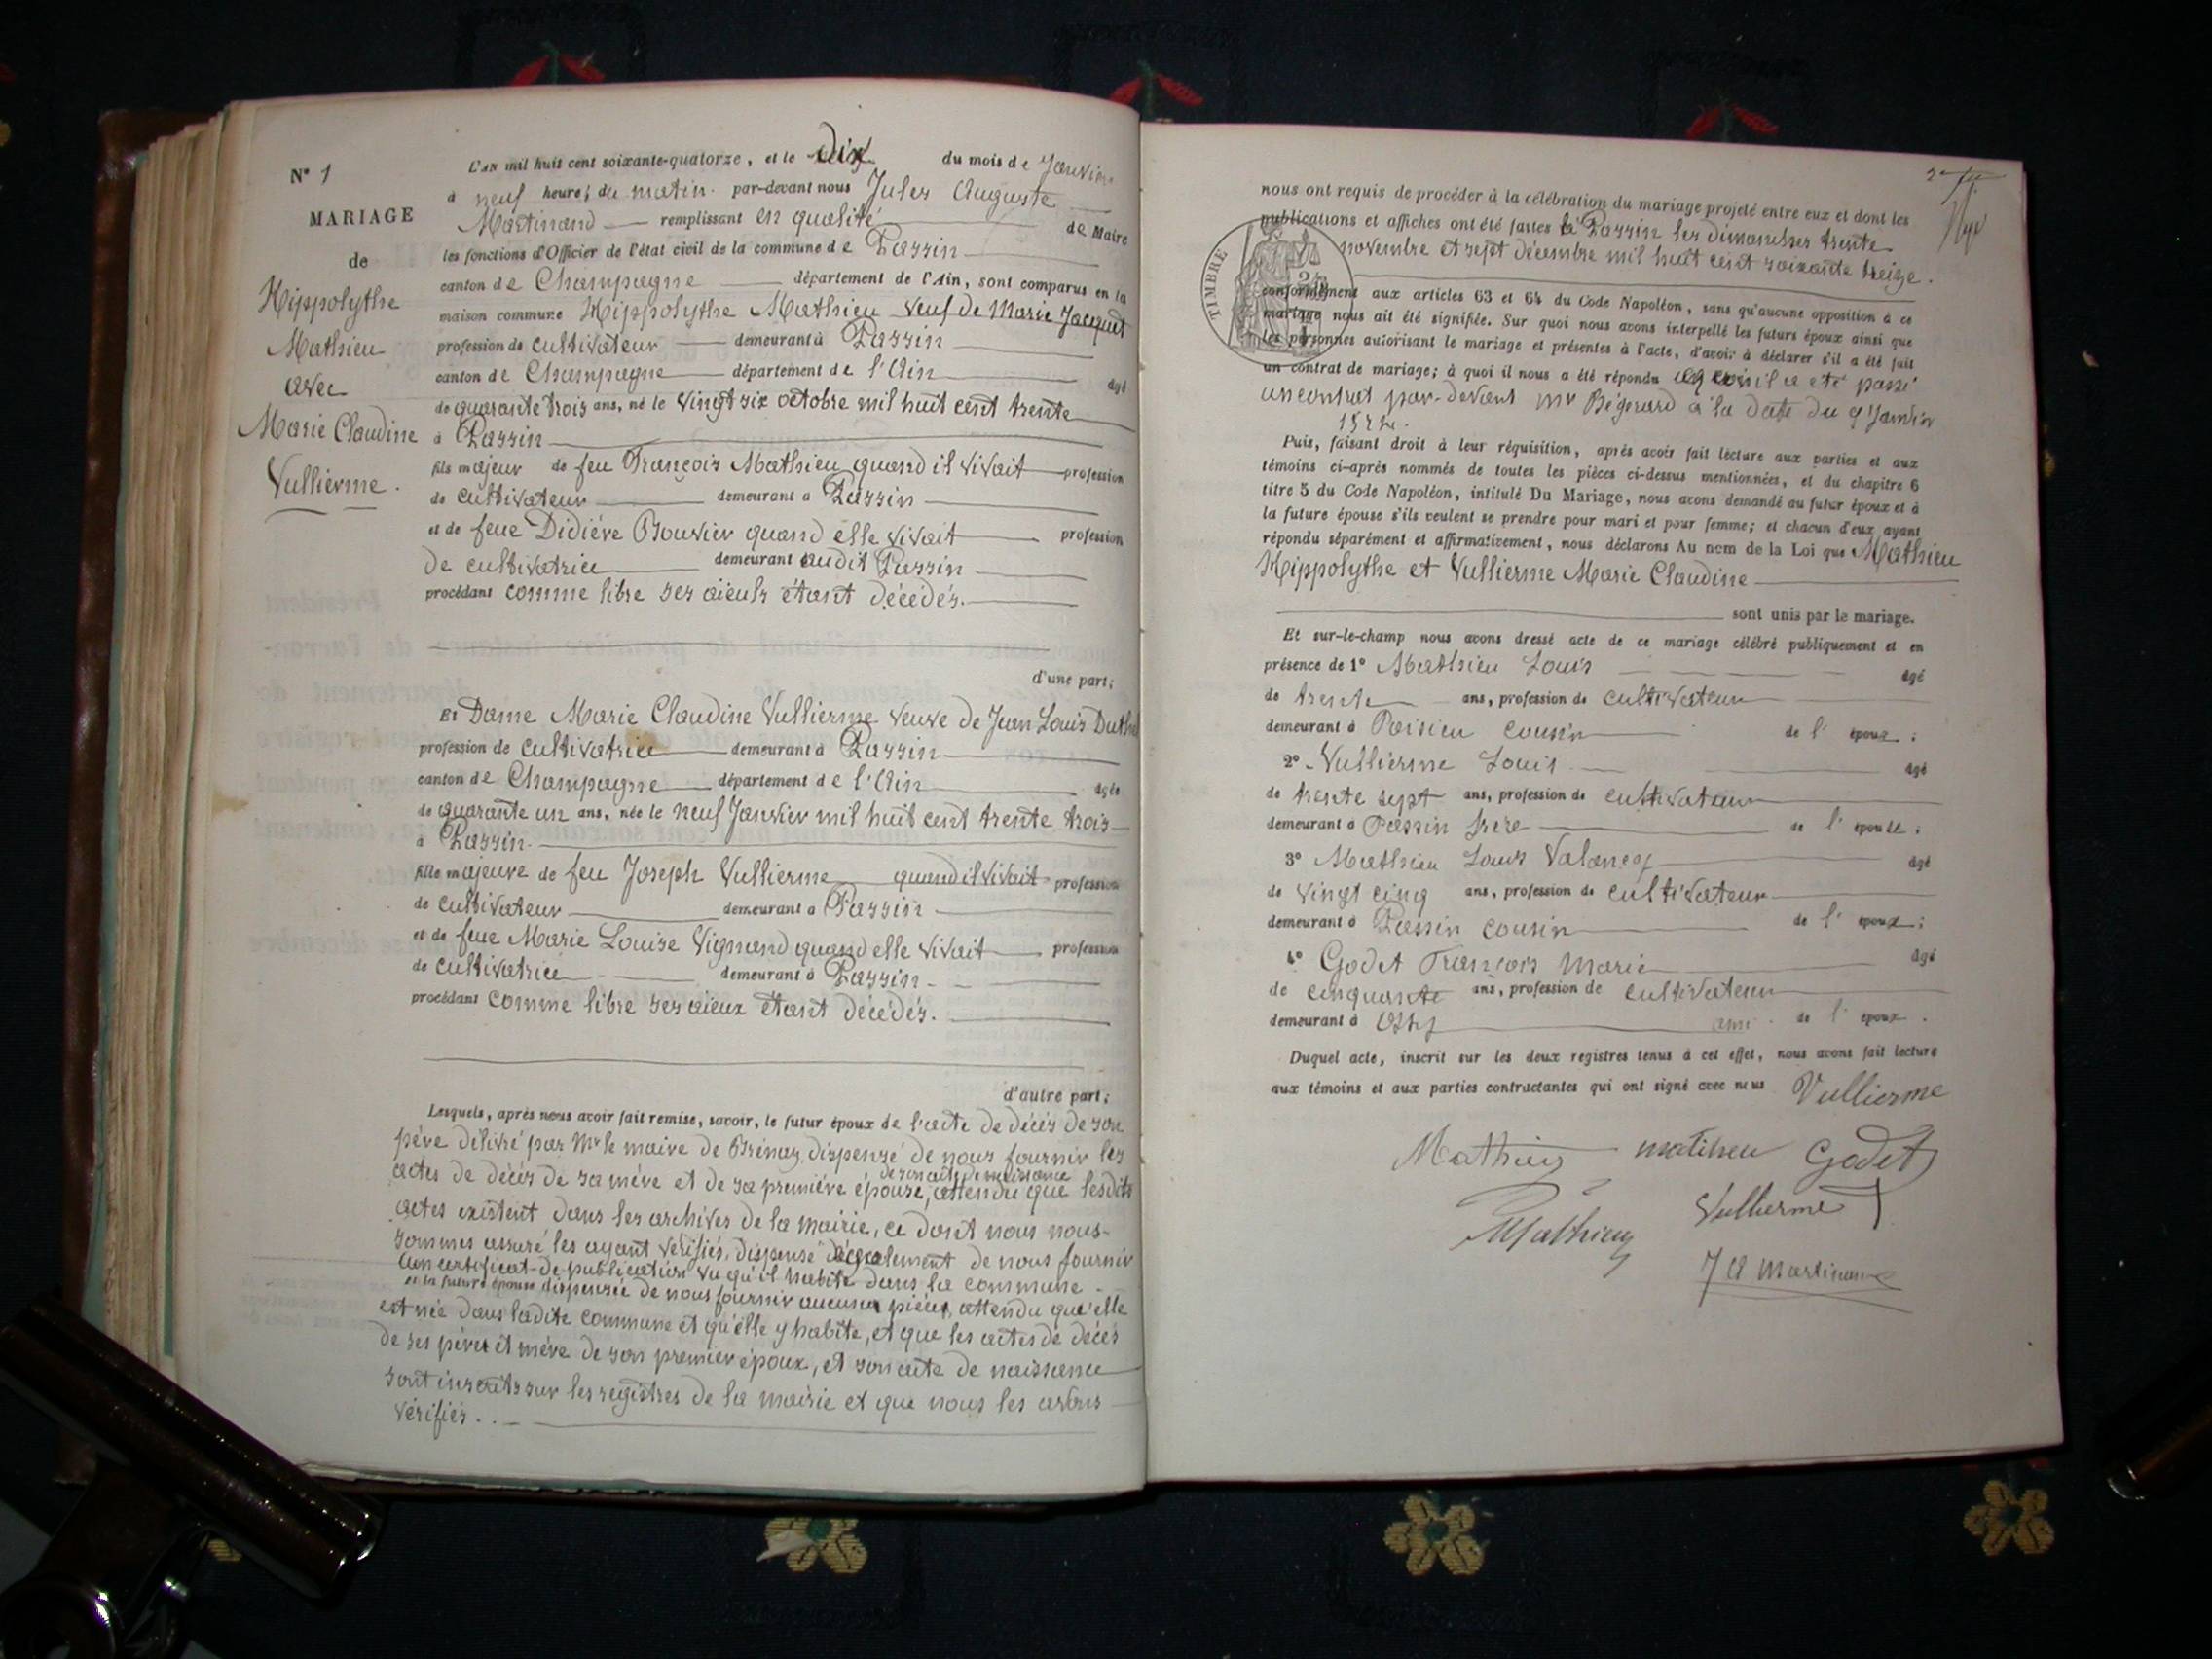 N° 1
MARIAGE
de
Hippolythe
Mathieu
avec
Marie Claudine
Vullierme.
L'an mil huit cent soixante-quatorze, et le dix du mois de Janvier
à neuf heures du matin par-devant nous Jules Auguste
Martinand remplissant en qualité de Maire
les fonctions d'Officier de l'état civil de la commune de Passin
canton de Champagne département de l'Ain, sont comparus en la
maison commune Hippolythe Mathieu veuf de Marie Jacquet
profession de cultivateur demeurant à Passin
canton de Champagne département de l'Ain âgé
de quarante trois ans, né le vingt six octobre mil huit cent trente
à Passin
fils majeur de feu François Mathieu quand il vivait profession
de cultivateur demeurant à Passin
et de feue Didière Bouvier quand elle vivait profession
de cultivatrice demeurant audit Passin
procédant comme libre ses aïeuls étant décédés.
d'une part;
Et Dame Marie Claudine Vullierme veuve de Jean Louis
profession de cultivatrice demeurant à Passin
canton de Champagne département de l'Ain âgée
de quarante un ans, née le neuf Janvier mil huit cent trente trois
à Passin.
fille majeure de feu Joseph Vullierme quand il vivait profession
de cultivateur demeurant à Passin
et de feue Marie Louise Vignand quand elle vivait profession
de cultivatrice demeurant à Passin
procédant comme libre ses aïeux étant décédés.
d'autre part;
Lesquels, après nous avoir fait remise, savoir, le futur époux de l'acte de décès de son
père délivré par Mr le maire de Brénaz, dispensé de nous fournir les
actes de décès de sa mère et de sa première épouse, de son acte de naissance attendu que lesdits
actes existent dans les archives de la mairie, ce dont nous nous
sommes assuré les ayant vérifiés, dispensé également de nous fournir
un certificat de publication vu qu'il habite dans la commune
et la future épouse dispensée de nous fournir aucune pièce, attendu qu'elle
est née dans ladite commune et qu'elle y habite, et que les actes de décès
de ses père et mère de son premier époux, et son acte de naissance
sont inscrits sur les registres de la mairie et que nous les avons
vérifiés.
nous ont requis de procéder à la célébration du mariage projeté entre eux et dont les
publications et affiches ont été faites à Passin les dimanches trente
novembre et sept décembre mil huit cent soixante treize.
TIMBRE
conformément aux articles 63 et 64 du Code Napoléon, sans qu'aucune opposition à ce
mariage nous ait été signifiée. Sur quoi nous avons interpellé les futurs époux ainsi que
les personnes autorisant le mariage et présentes à l'acte, d'avoir à déclarer s'il a été fait
un contrat de mariage; à quoi il nous a été répondu qu'il a été passé
un contrat par-devant Mr Bégerard à la date du 9 Janvier
Puis, faisant droit à leur réquisition, après avoir fait lecture aux parties et aux
témoins ci-après nommés de toutes les pièces ci-dessus mentionnées, et du chapitre 6
titre 5 du Code Napoléon, intitulé Du Mariage, nous avons demandé au futur époux et à
la future épouse s'ils veulent se prendre pour mari et pour femme; et chacun d'eux ayant
répondu séparément et affirmativement, nous déclarons Au nom de la Loi que Mathieu
Hippolythe et Vullierme Marie Claudine
sont unis par le mariage.
Et sur-le-champ nous avons dressé acte de ce mariage célébré publiquement et en
présence de 1° Mathieu Louis âgé
de trente ans, profession de cultivateur
demeurant à Poisieu cousin de l'époux;
2° Vullierme Louis âgé
de trente sept ans, profession de cultivateur
demeurant à Passin frère de l'épouse;
3° Mathieu Louis âgé
de vingt cinq ans, profession de cultivateur
demeurant à Passin cousin de l'époux;
4° Godet François Marie âgé
de cinquante ans, profession de cultivateur
demeurant à ami de l'époux.
Duquel acte, inscrit sur les deux registres tenus à cet effet, nous avons fait lecture
aux témoins et aux parties contractantes qui ont signé avec nous Vullierme
Mathieu matiheu Godet
Mathieu Vullierme
J A Martinand